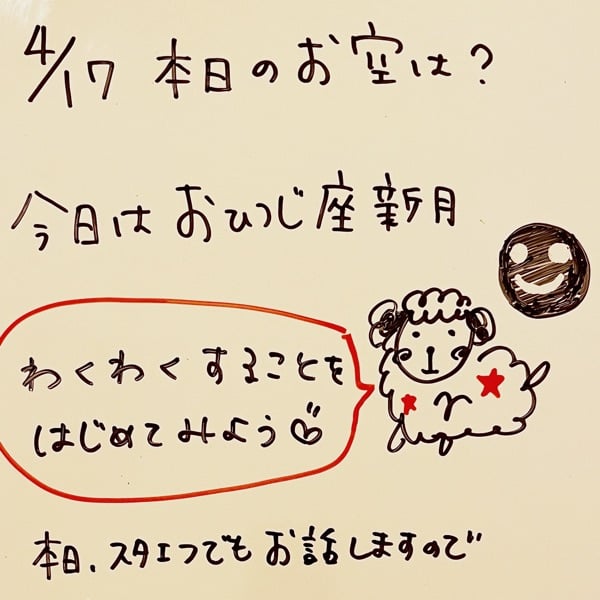 4/17 本日のお空は?
今日はおひつじ座新月
わくわくすることを
はじめてみよう♡
♈
本日、スタエフでもお話しますので